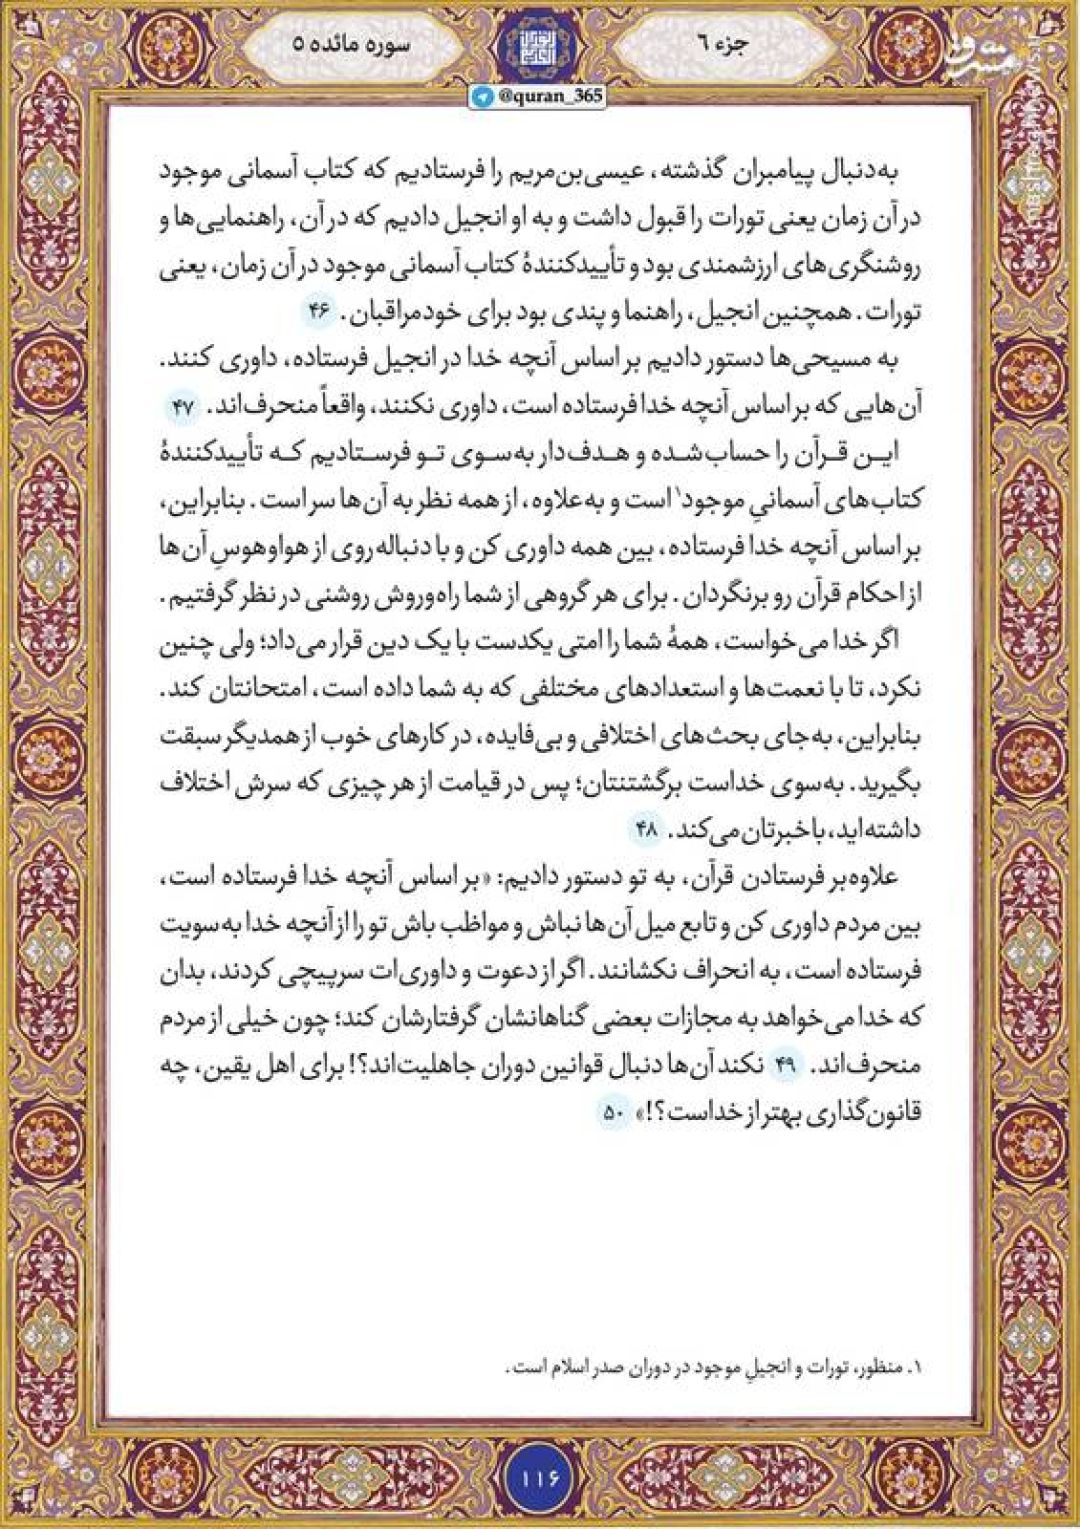 جزء ۶
سوره مائده ۵
@quran_365
مشرق
mashreghnews.ir
به‌دنبال پیامبران گذشته، عیسی‌بن‌مریم را فرستادیم که کتاب آسمانی موجود
در آن زمان یعنی تورات را قبول داشت و به او انجیل دادیم که در آن، راهنمایی‌ها و
روشنگری‌های ارزشمندی بود و تأییدکنندهٔ کتاب آسمانی موجود در آن زمان، یعنی
تورات. همچنین انجیل، راهنما و پندی بود برای خودمراقبان. ۴۶
به مسیحی‌ها دستور دادیم بر اساس آنچه خدا در انجیل فرستاده، داوری کنند.
آن‌هایی که بر اساس آنچه خدا فرستاده است، داوری نکنند، واقعاً منحرف‌اند. ۴۷
این قرآن را حساب‌شده و هدف‌دار به‌سوی تو فرستادیم که تأییدکنندهٔ
کتاب‌های آسمانیِ موجود۱ است و به‌علاوه، از همه نظر به آن‌ها سر است. بنابراین،
بر اساس آنچه خدا فرستاده، بین همه داوری کن و با دنباله‌روی از هواوهوسِ آن‌ها
از احکام قرآن رو برنگردان. برای هر گروهی از شما راه‌وروش روشنی در نظر گرفتیم.
اگر خدا می‌خواست، همهٔ شما را امتی یکدست با یک دین قرار می‌داد؛ ولی چنین
نکرد، تا با نعمت‌ها و استعدادهای مختلفی که به شما داده است، امتحانتان کند.
بنابراین، به‌جای بحث‌های اختلافی و بی‌فایده، در کارهای خوب از همدیگر سبقت
بگیرید. به‌سوی خداست برگشتنتان؛ پس در قیامت از هر چیزی که سرش اختلاف
داشته‌اید، باخبرتان می‌کند. ۴۸
علاوه‌بر فرستادن قرآن، به تو دستور دادیم: «بر اساس آنچه خدا فرستاده است،
بین مردم داوری کن و تابع میل آن‌ها نباش و مواظب باش تو را از آنچه خدا به‌سویت
فرستاده است، به انحراف نکشانند. اگر از دعوت و داوری‌ات سرپیچی کردند، بدان
که خدا می‌خواهد به مجازات بعضی گناهانشان گرفتارشان کند؛ چون خیلی از مردم
منحرف‌اند. ۴۹ نکند آن‌ها دنبال قوانین دوران جاهلیت‌اند؟! برای اهل یقین، چه
قانون‌گذاری بهتر از خداست؟!» ۵۰
۱. منظور، تورات و انجیلِ موجود در دوران صدر اسلام است.
۱۱۶